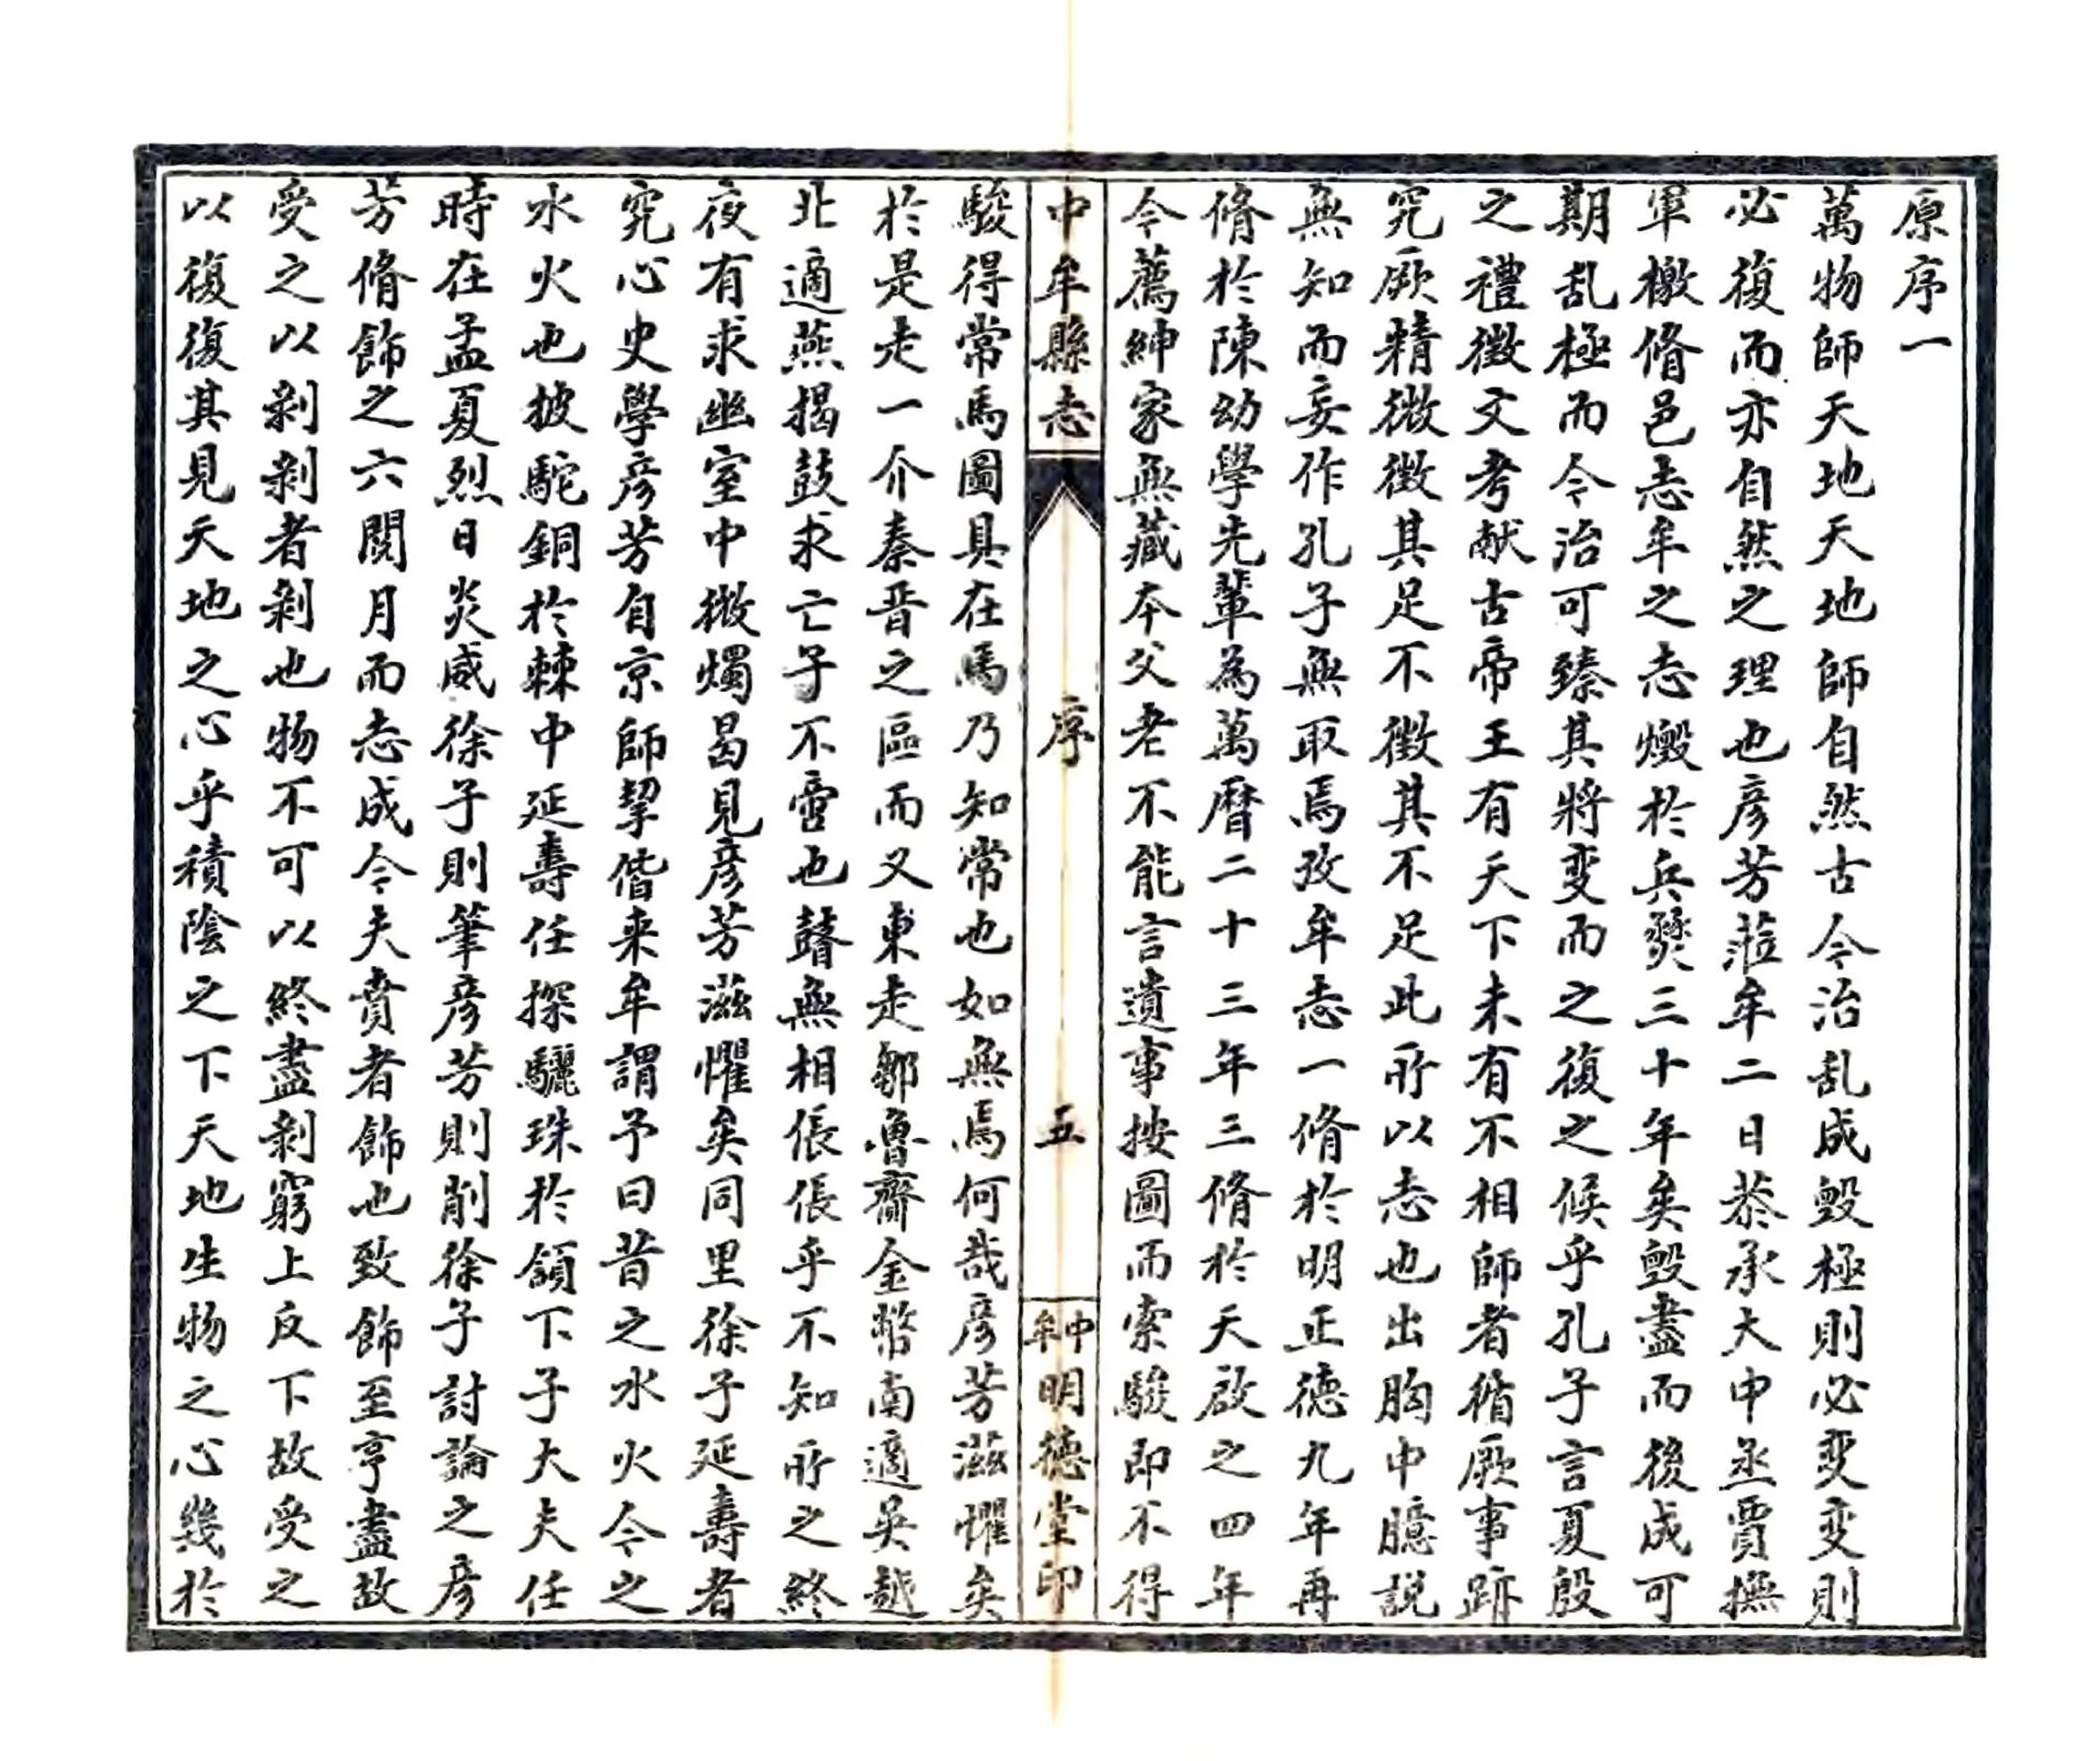 原序一
萬物師天地天地師自然古今治乱成毀極則必变变則
必復而亦自然之理也彦芳蒞牟二日恭承大中丞賈撫
軍檄脩邑志牟之志燬於兵燹三十年矣毀盡而後成可
期乱極而今治可臻其將变而之復之候乎孔子言夏殷
之禮徵文考献古帝王有天下未有不相師者循厥事跡
究厥精微徵其足不徵其不足此所以志也出胸中臆説
無知而妄作孔子無取焉攷牟志一脩於明正德九年再
脩於陳幼學先輩為萬暦二十三年三脩於天啟之四年
今薦紳家無藏本父老不能言遺事按圖而索駿即不得
中牟縣志
序
五
中牟明德堂印
駿得常馬圖具在馬乃知常也如無馬何哉彦芳滋懼矣
於是走一介秦晋之區而又東走鄒魯齋金幣南適吳越
北適燕揭鼓求亡子不啻也瞽無相倀倀乎不知所之終
夜有求幽室中微燭曷見彦芳滋懼矣同里徐子延壽者
究心史學彦芳自京師挈偕来牟謂予曰昔之水火今之
水火也披駝銅於棘中延壽任探驪珠於頷下子大夫任
時在孟夏烈日炎威徐子則筆彦芳則削徐子討論之彦
芳脩飾之六閱月而志成令夫賁者飾也致飾至亨盡故
受之以剥剥者剥也物不可以終盡剥窮上反下故受之
以復復其見天地之心乎積陰之下天地生物之心幾於